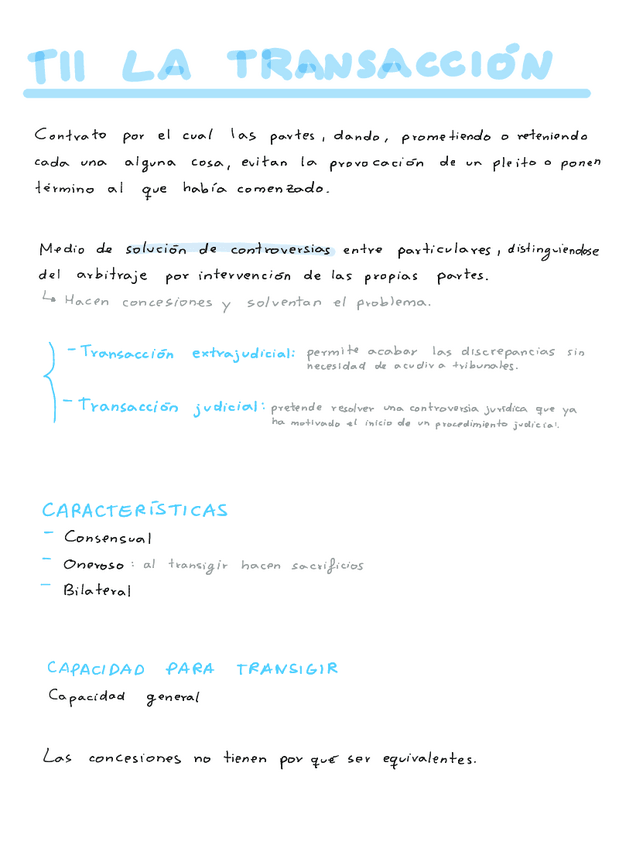 T11 LA TRANSACCIÓN
Contrato por el cual las partes, dando, prometiendo o reteniendo
cada una alguna cosa, evitan la provocación de un pleito o ponen
término al que había comenzado.
Medio de solución de controversias entre particulares, distinguiendose
del arbitraje por intervención de las propias partes.
↳ Hacen concesiones y solventan el problema.
- Transacción extrajudicial: permite acabar las discrepancias sin
necesidad de acudir a tribunales.
- Transacción judicial: pretende resolver una controversia jurídica que ya
ha motivado el inicio de un procedimiento judicial.
CARACTERÍSTICAS
- Consensual
- Oneroso: al transigir hacen sacrificios
- Bilateral
CAPACIDAD PARA TRANSIGIR
Capacidad general
Las concesiones no tienen por qué ser equivalentes.